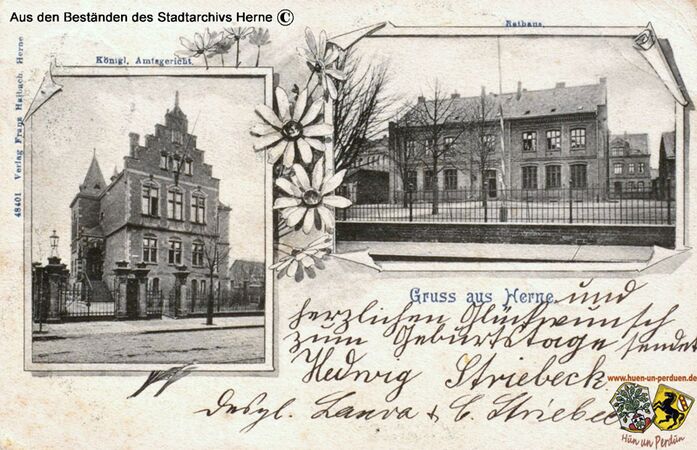 Aus den Beständen des Stadtarchivs Herne ©
Rathaus.
Königl. Amtsgericht.
48401 Verlag Franz Haibach, Herne
Gruss aus Herne und
herzlichen Glückwunsch
zum Geburtstage sendet
Hedwig Striebeck.
Desgl. Laura & C. Striebeck
www.huen-un-perduen.de
Hün un Perdün